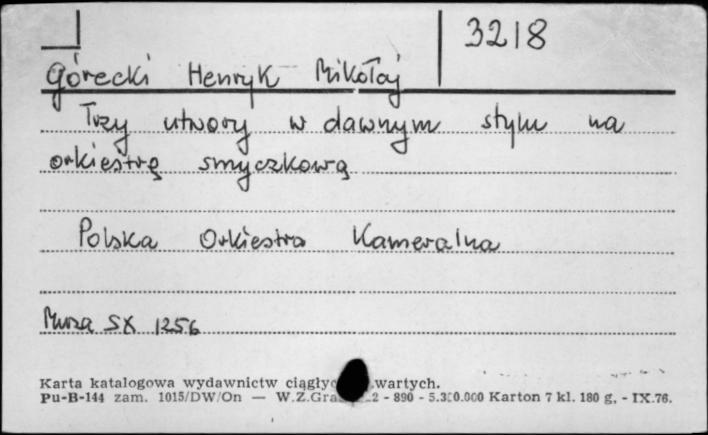 3218
Górecki Henryk Mikołaj
Trzy utwory w dawnym stylu na
orkiestrę smyczkową
Polska Orkiestra Kameralna
Muza SX 1256
Karta katalogowa wydawnictw wartych.
Pu-B-144 zam. 1015/DW/On — W.Z.Gra 2 - 890 - 5.300.000 Karton 7 kl. 180 g. - IX.76.